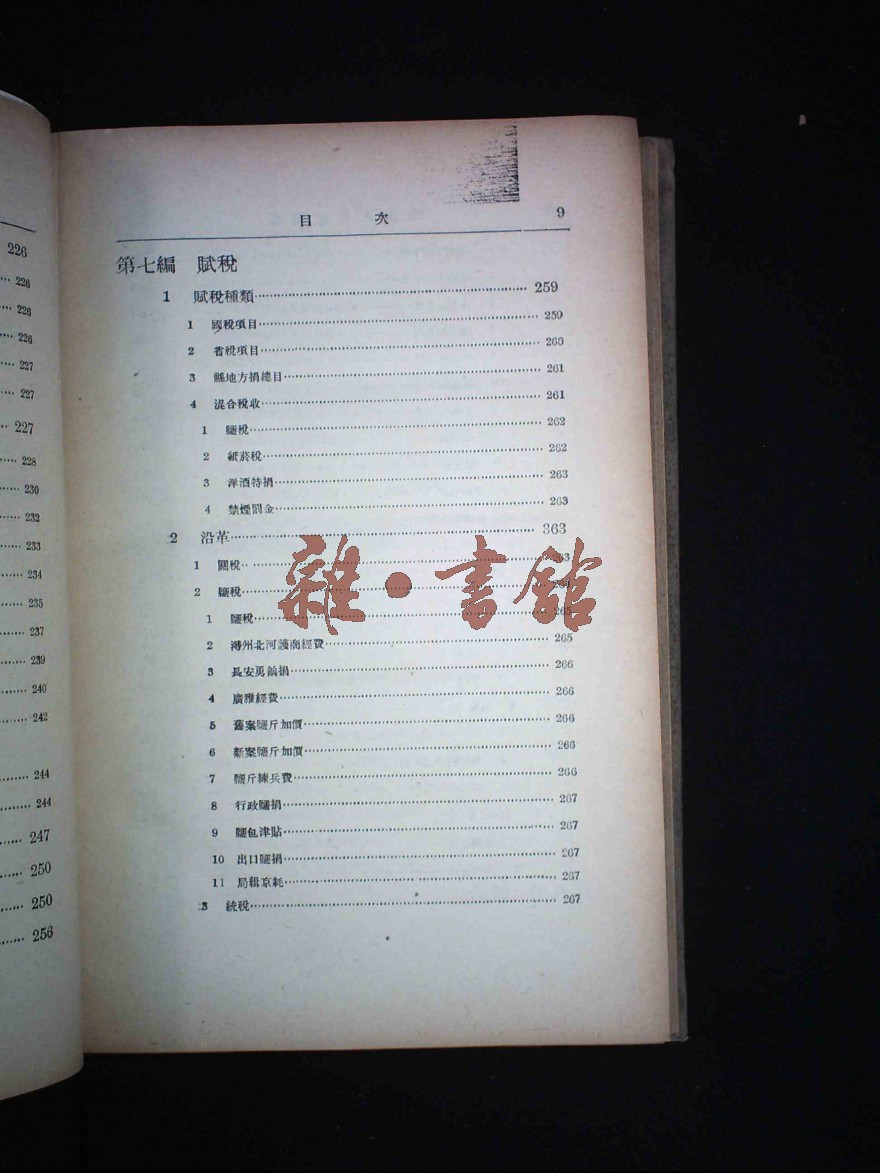 226
226
226
226
227
227
227
228
230
232
233
234
235
237
239
240
242
244
244
247
250
250
256
目 次 9
第七編 賦稅
1 賦稅種類 259
1 國稅項目 259
2 省稅項目 260
3 縣地方捐總目 261
4 混合稅收 261
1 鹽稅 262
2 紙菸稅 262
3 洋酒特捐 263
4 禁煙罰金 263
2 沿革 363
1 關稅 263
2 鹽稅
1 鹽稅 265
2 潯州北河護商經費 265
3 長安勇餉捐 266
4 廣雅經費 266
5 舊案鹽斤加價 266
6 新案鹽斤加價 266
7 鹽斤練兵費 266
8 行政鹽捐 267
9 鹽包津貼 267
10 出口鹽捐 267
11 局緝京耗 267
3 統稅 267
雜·書館